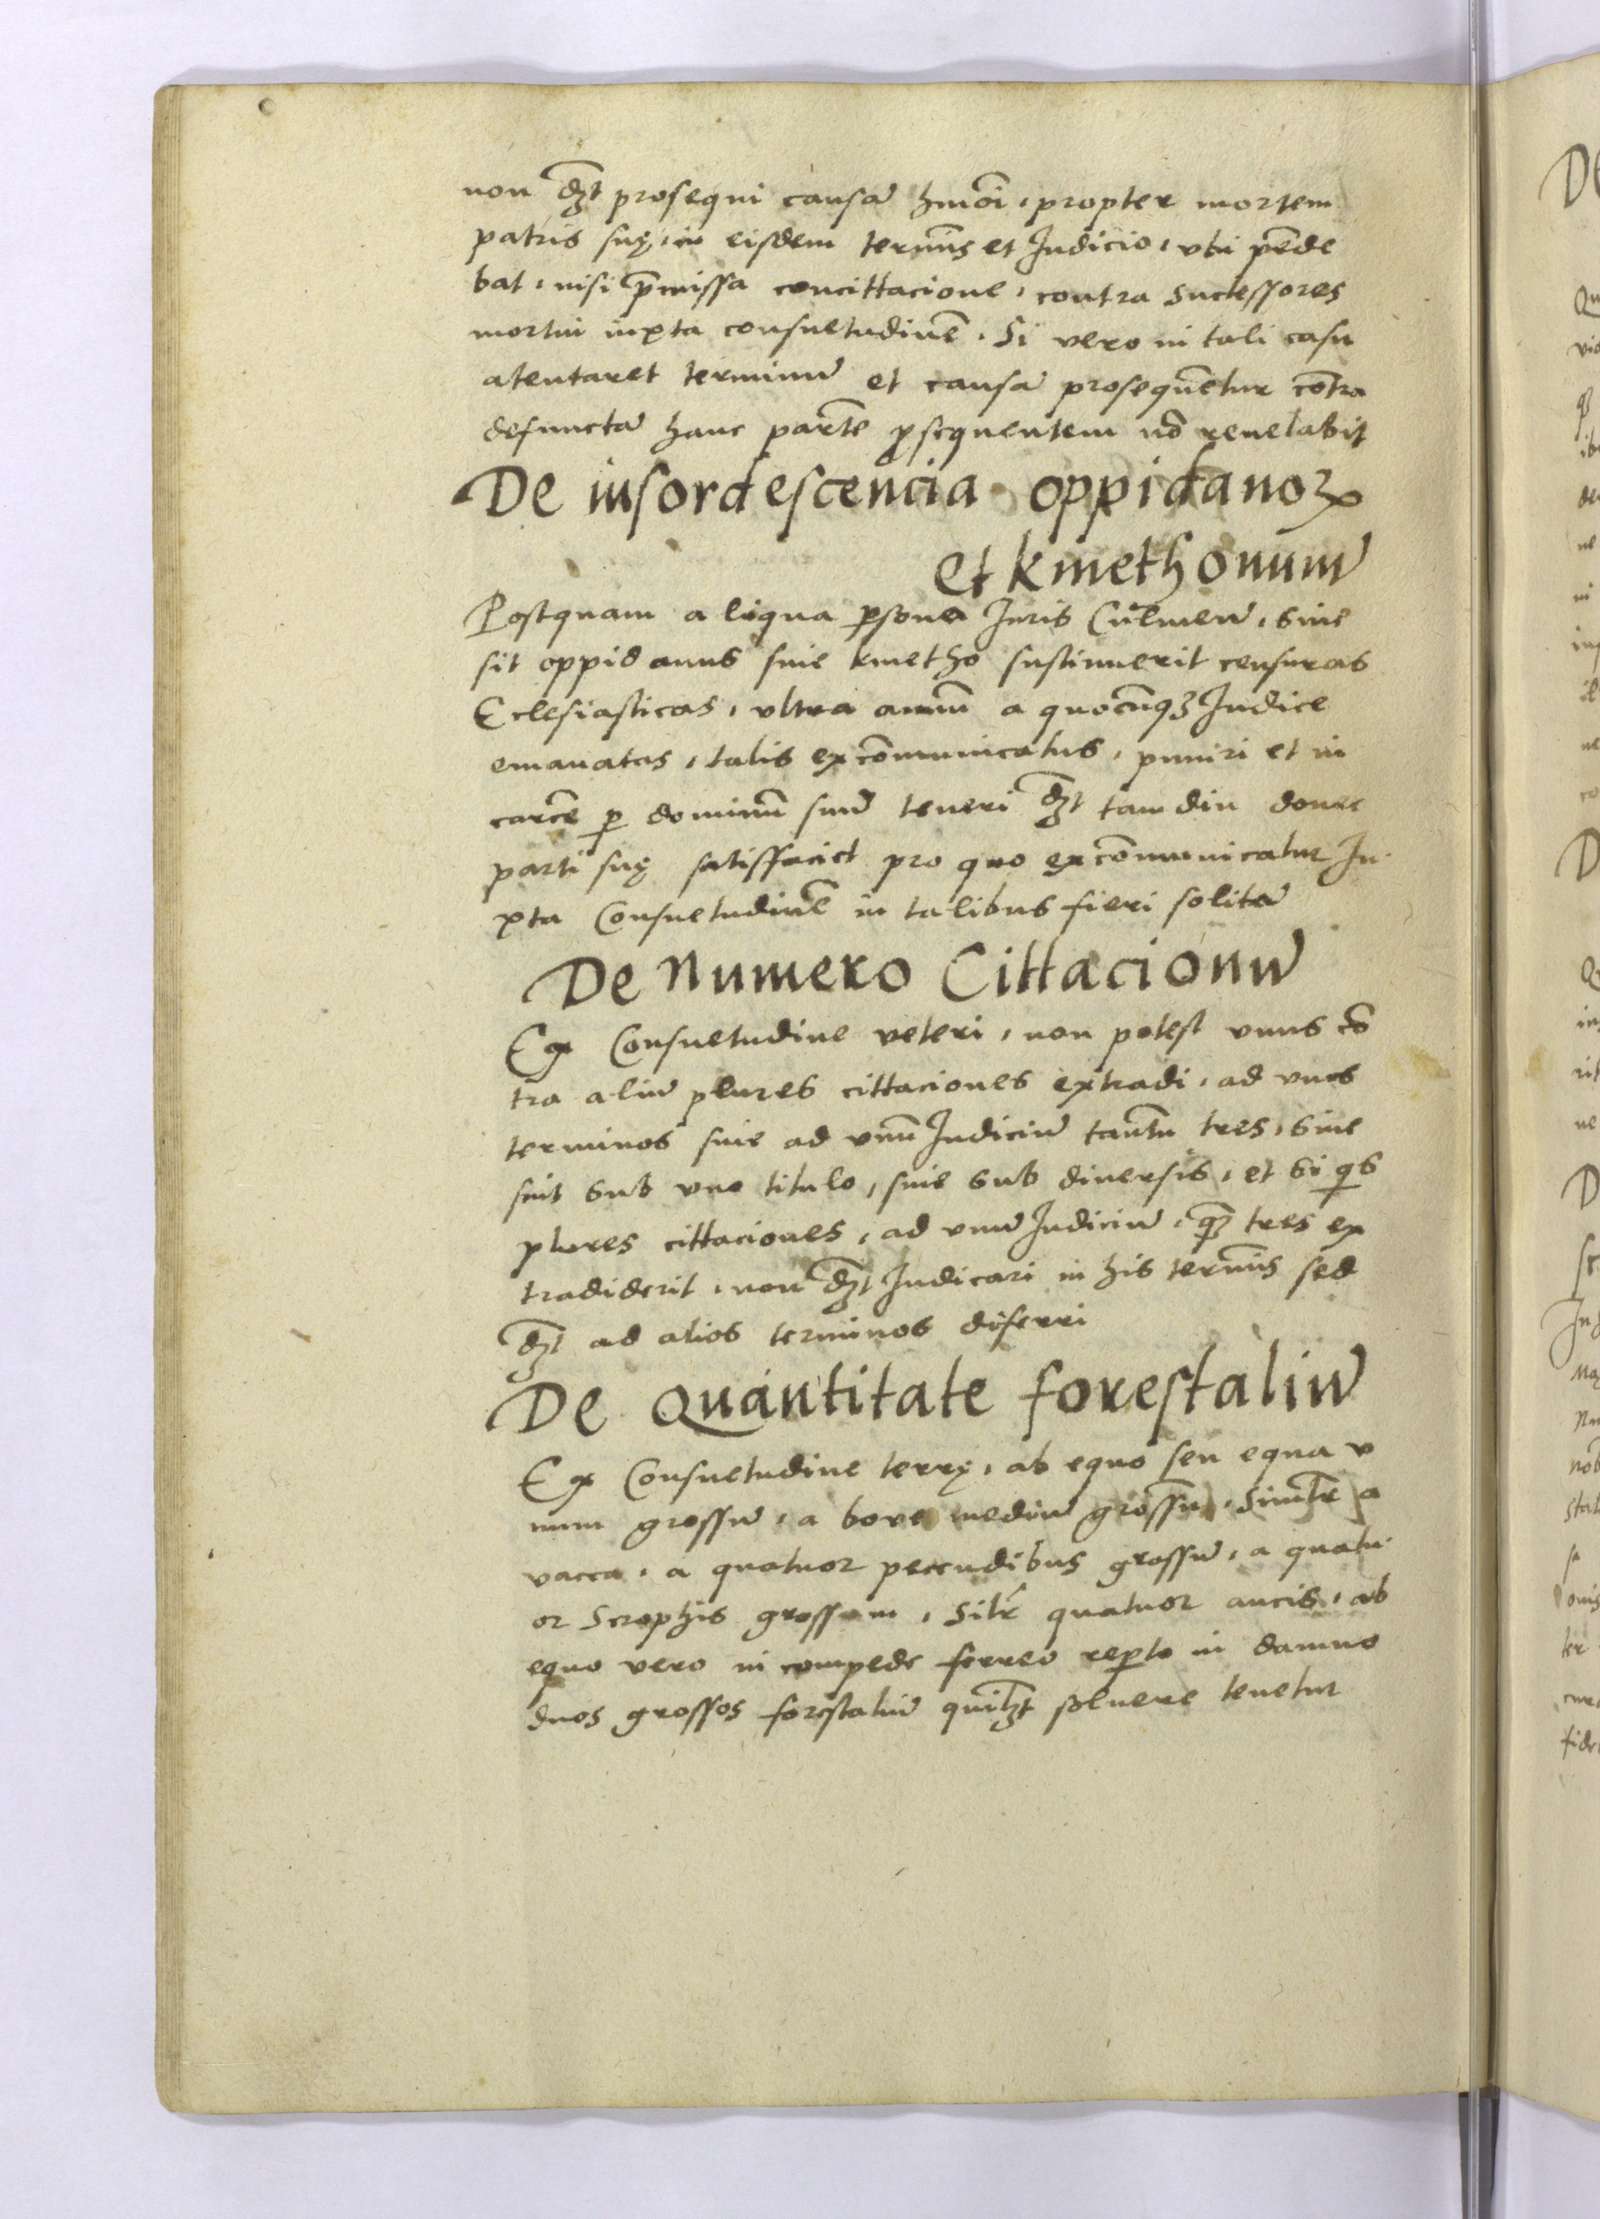 non dꝫt prosequi causā hmōi, propter mortem
patris suę, in eisdem termīs et Judicio, vbi pēde
bat, nisi p̄missa concittacione, contra Sucessores
mortui iuxta consuetudinē. Si vero in tali casu
atentaret terminū et causā prosequēretur cōtra
defunctā hanc partē ꝓsequentem nō reuelabit
De insordescencia oppidanoꝝ
et kmethonum̄
Postquam aliqua ꝑsona Juris Culmeñ, Siue
sit oppidanus siue kmetho sustinuerit censuras
Eclesiasticas, vltra annū a quocūqꝫ Judice
emanatas, talis excōmunicatus, puniri et in
carcē ꝑ dominū suū teneri dꝫt tam diu donec
parti suę satisfaciet pro quo excōmunicatur Ju
xta Consuetudinē in talibus fieri solitā
De Numero Cittacionū
Ex Consuetudine veteri, non potest vnus cō
tra aliū plures cittaciones extradi, ad vnos
terminos siue ad vnū Judiciū tantū tres, Siue
sint Sub vno titulo, siue Sub diuersis, et Si qs
plures cittaciones, ad vnū Judiciū, qꝫ tres ex
tradiderit, non dꝫt Judicari in his termīs sed
dꝫt ad alios terminos diferri
De Quantitate forestaliū
Ex Consuetudine terrę, ab equo seu equa v
num grossū, a bove mediū grossū, Similr̄ a
vacca, a quatuor peccudibus grossū, a quatu
or Scrophis grossum, Silr̄ quatuor aucis, ab
equo vero in compede ferreo reꝑto in damno
duos grossos forestaliū quilꝫt soluere tenetur